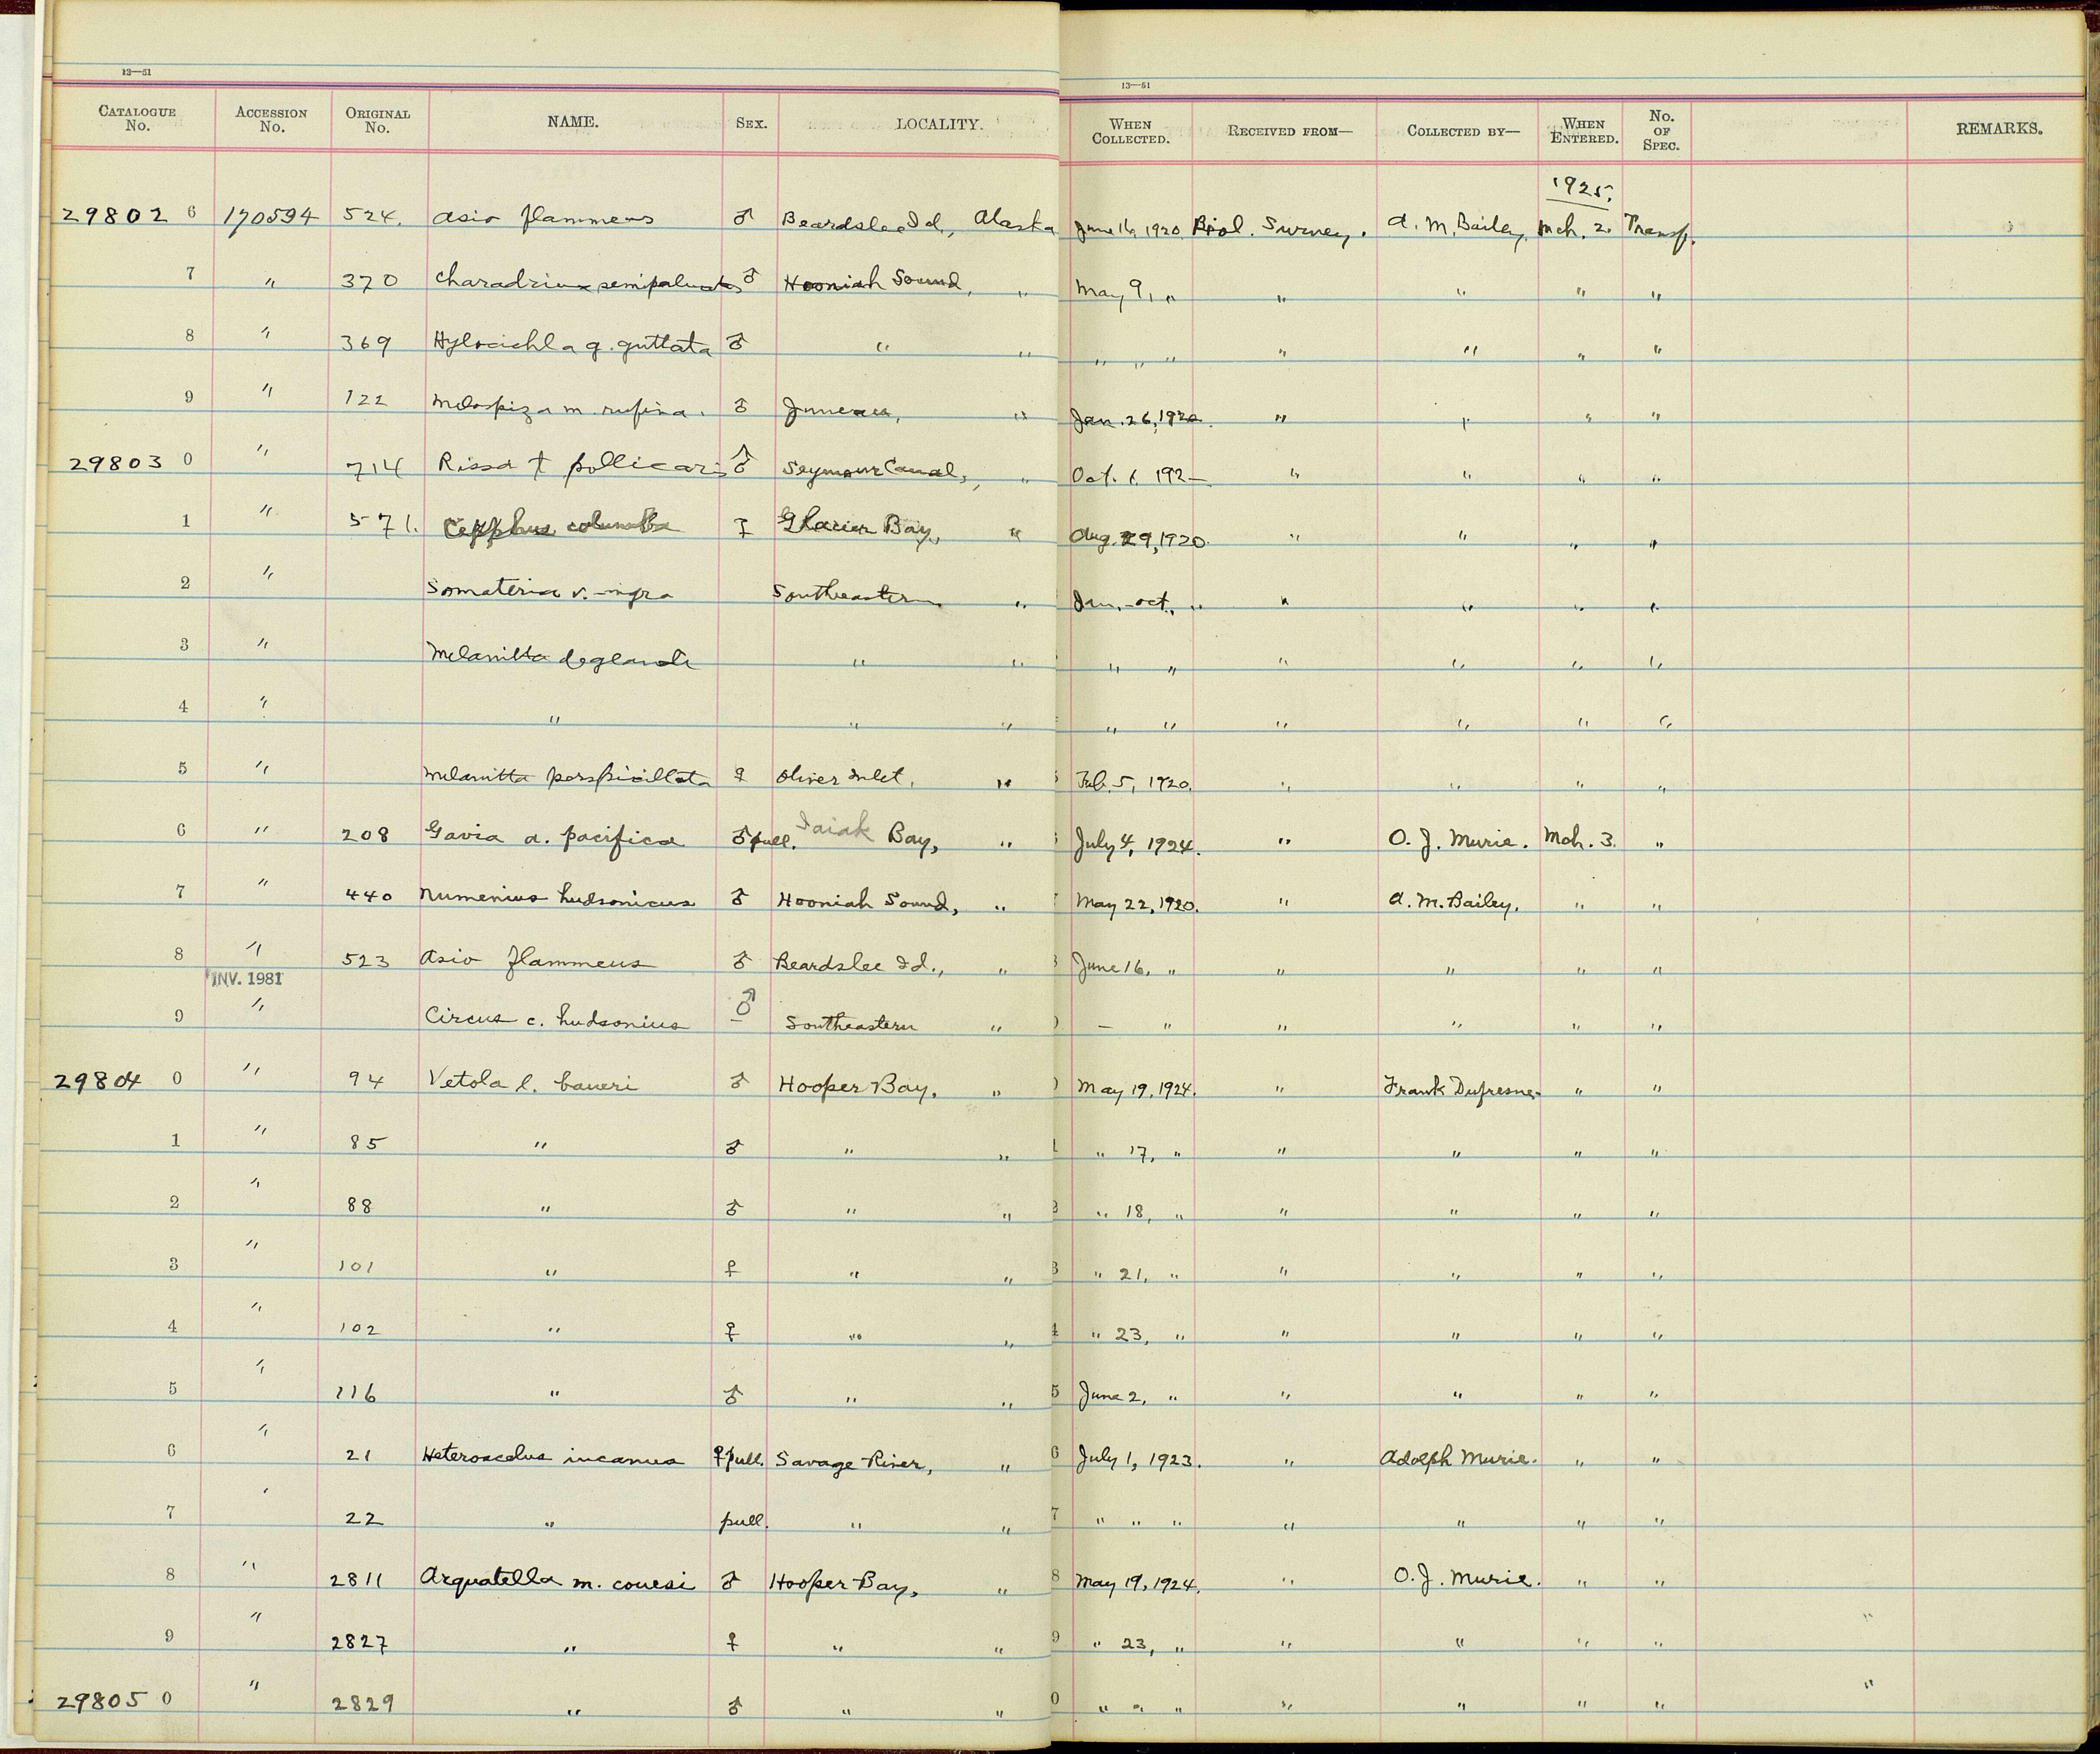 13—51 13—51
CATALOGUE No. ACCESSION No. ORIGINAL No. NAME. SEX. LOCALITY. WHEN COLLECTED. RECEIVED FROM— COLLECTED BY— WHEN ENTERED. No. OF SPEC. REMARKS.
1925.
29802 6 170594 524. Asio flammeus ♂ Beardslee Id., Alaska June 16, 1920 Biol. Survey. A. M. Bailey Mch. 2. Transf.
7 " 370 Charadrius semipalmatus ♂ Hooniah Sound, " May 9, " " " " "
8 " 369 Hylocichla g. guttata ♂ " " " " " " " " "
9 " 122 Melospiza m. rufina. ♂ Juneau, " Jan. 26, 1920. " " " "
29803 0 " 714 Rissa t pollicaris ♂ Seymour Canal, " Oct. 6 192— " " " "
1 " 571. Cepphus columba ♀ Glacier Bay, " Aug. 29, 1920. " " " "
2 " Somateria v. nigra Southeastern " Jan.-Oct., " " " " "
3 " Melanitta deglandi " " " " " " " "
4 " " " " " " " " " "
5 " Melanitta perspicillata ♀ Oliver Inlet, " Feb. 5, 1920. " " " "
6 " 208 Gavia a. pacifica ♂ pull. Bay, " July 4, 1924. " O. J. Murie. Mch. 3. "
7 " 440 Numenius hudsonicus ♂ Hooniah Sound, " May 22, 1920. " A. M. Bailey. " "
8 " 523 Asio flammeus ♂ Beardslee Id., " June 16, " " " " "
INV. 1981
9 " Circus c. hudsonius ♂ Southeastern " — " " " " "
29804 0 " 94 Vetola l. baueri ♂ Hooper Bay, " May 19, 1924. " Frank Dufresne. " "
1 " 85 " ♂ " " " 17, " " " " "
2 " 88 " ♂ " " " 18, " " " " "
3 " 101 " ♀ " " " 21, " " " " "
4 " 102 " ♀ " " " 23, " " " " "
5 " 116 " ♂ " " June 2, " " " " "
6 " 21 Heteroscelus incanus ♀ pull. Savage River, " July 1, 1923. " Adolph Murie. " "
7 ' 22 " pull. " " " " " " " " "
8 " 2811 Arquatella m. couesi ♂ Hooper Bay, " May 19, 1924. " O. J. Murie. " "
9 " 2827 " ♀ " " " 23, " " " " " "
29805 0 " 2829 " ♂ " " " " " " " " " "